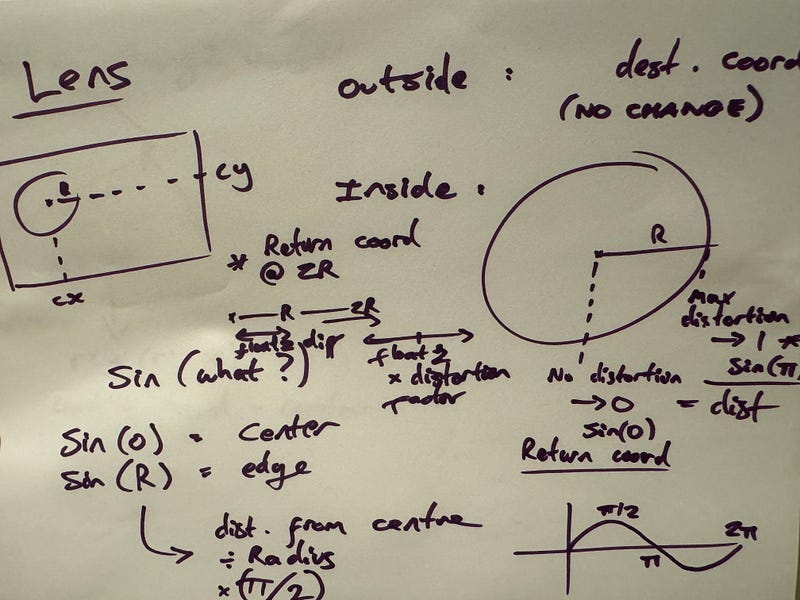 Lens
outside : dest. coord
(NO CHANGE)
R
cy
cx
Inside :
* Return coord
@ 2R
R
2R
float2 diff
float2
x distortion
Sin (what?)
R
Max
distortion
→ 1 *
Sin(π)
= dist
No distortion
→ 0
Sin(0)
Return coord
Sin(0) = center
Sin(R) = edge
dist. from centre
÷ Radius
x (π/2)
π/2
π
2π